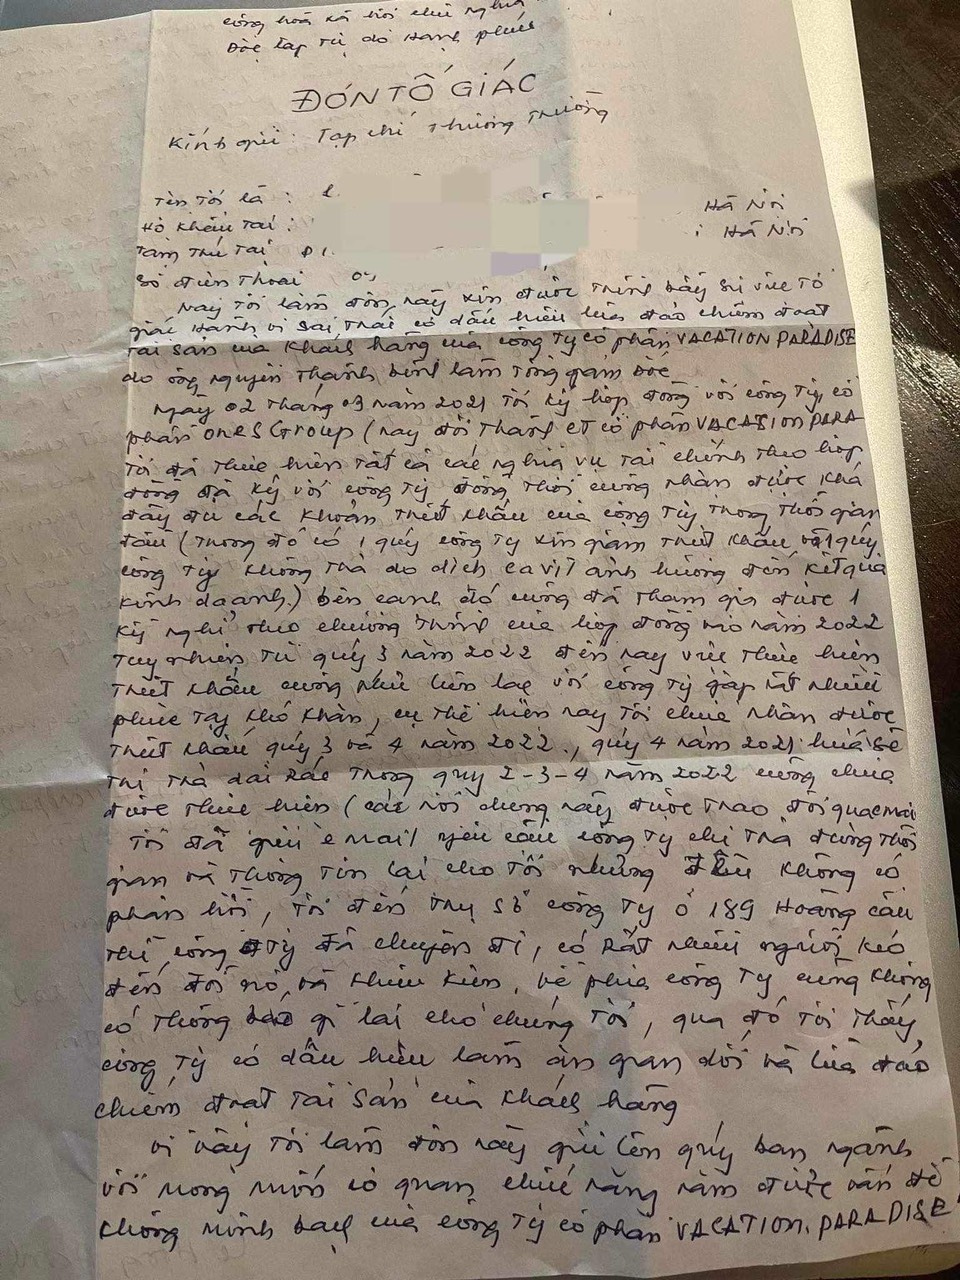 cộng hoà xã hội chủ nghĩa
Độc lập tự do Hạnh phúc
ĐƠN TỐ GIÁC
Kính gửi: Tạp chí Thương Trường
Tên tôi là :
Hà Nội
Hộ khẩu tại :
Hà Nội
Tạm trú tại
Số điện thoại
Nay tôi làm đơn này xin được trình bày sự việc tố
giác hành vi sai trái có dấu hiệu lừa đảo chiếm đoạt
tài sản của khách hàng của công ty cổ phần VACATION PARADISE
do ông nguyễn thanh bình làm tổng giám đốc
Ngày 02 tháng 03 năm 2021 tôi ký hợp đồng với công ty cổ
phần ONES Group (nay đổi thành ct cổ phần VACATION PARA
Tôi đã thực hiện tất cả các nghĩa vụ tài chính theo hợp
đồng đã ký với công ty, đồng thời cũng nhận được khá
đầy đủ các khoản triết khấu của công ty trong thời gian
đầu (trong đó có 1 quý công ty xin giảm triết khấu và 1 quý
công ty không trả do dịch cavit ảnh hưởng đến kết quả
kinh doanh.) bên cạnh đó cũng đã tham gia được 1
kỳ nghỉ theo chương trình của hợp đồng vào năm 2022
tuy nhiên từ quý 3 năm 2022 đến nay việc thực hiện
triết khấu cũng như liên lạc với công ty gặp rất nhiều
phức tạp khó khăn, cụ thể hiện nay tôi chưa nhận được
triết khấu quý 3 và 4 năm 2022., quý 4 năm 2021 hứa sẽ
trả dải rác trong quý 2-3-4 năm 2022 cũng chưa
được thực hiện (các nội dung này được trao đổi qua
Tôi đã gửi email yêu cầu công ty chi trả đúng thời
gian và thông tin lại cho tôi nhưng đều không có
phản hồi, tôi đến trụ sở công ty ở 189 Hoàng cầu
thì công ty đã chuyển đi, có rất nhiều người kéo
đến đòi nợ và khiếu kiện, về phía công ty cũng không
có thông báo gì lại cho chúng tôi, qua đó tôi thấy
công ty có dấu hiệu làm ăn gian dối và lừa đảo
chiếm đoạt tài sản của khách hàng
Vì vậy tôi làm đơn này gửi lên quý ban ngành
với mong muốn cơ quan chức năng nắm được vấn đề
không minh bạch của công ty cổ phần VACATION PARADISE